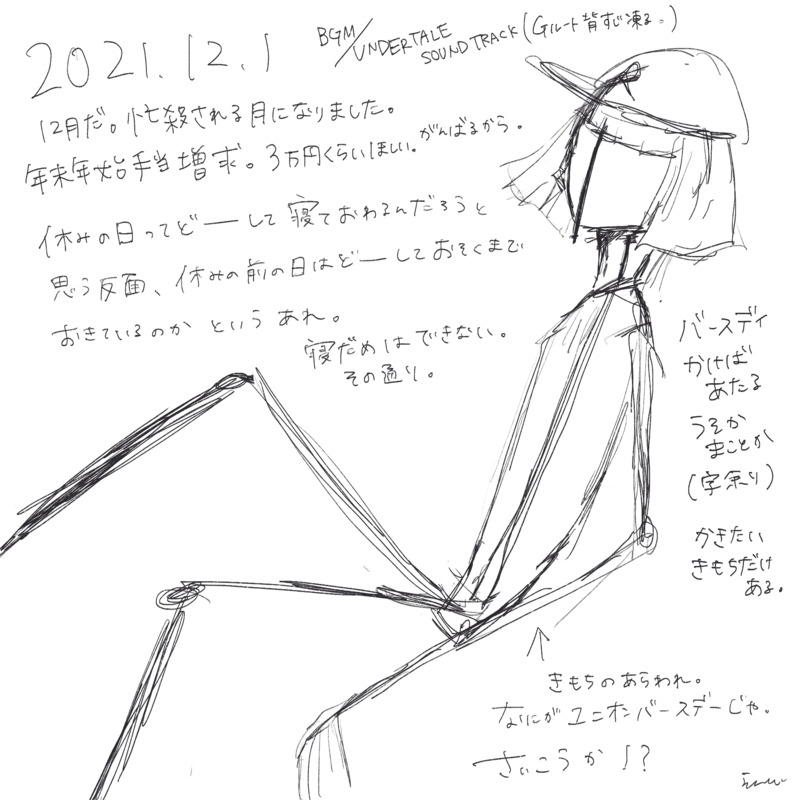 2021.12.1
BGM/UNDERTALE
SOUNDTRACK(Gルート背すじ凍る。)
12月だ。忙殺される月になりました。
年末年始手当増求。3万円くらいほしい。がんばるから。
休みの日ってどーして寝ておわるんだろうと
思う反面、休みの前の日はどーしておそくまで
おきているのか というあれ。
寝だめはできない。
その通り。
バースデイ
かけば
あたる
うそか
まことか
(字余り)
かきたい
きもちだけ
ある。
↑
きもちのあらわれ。
なにがユニオンバースデーじゃ。
さいこうか!?